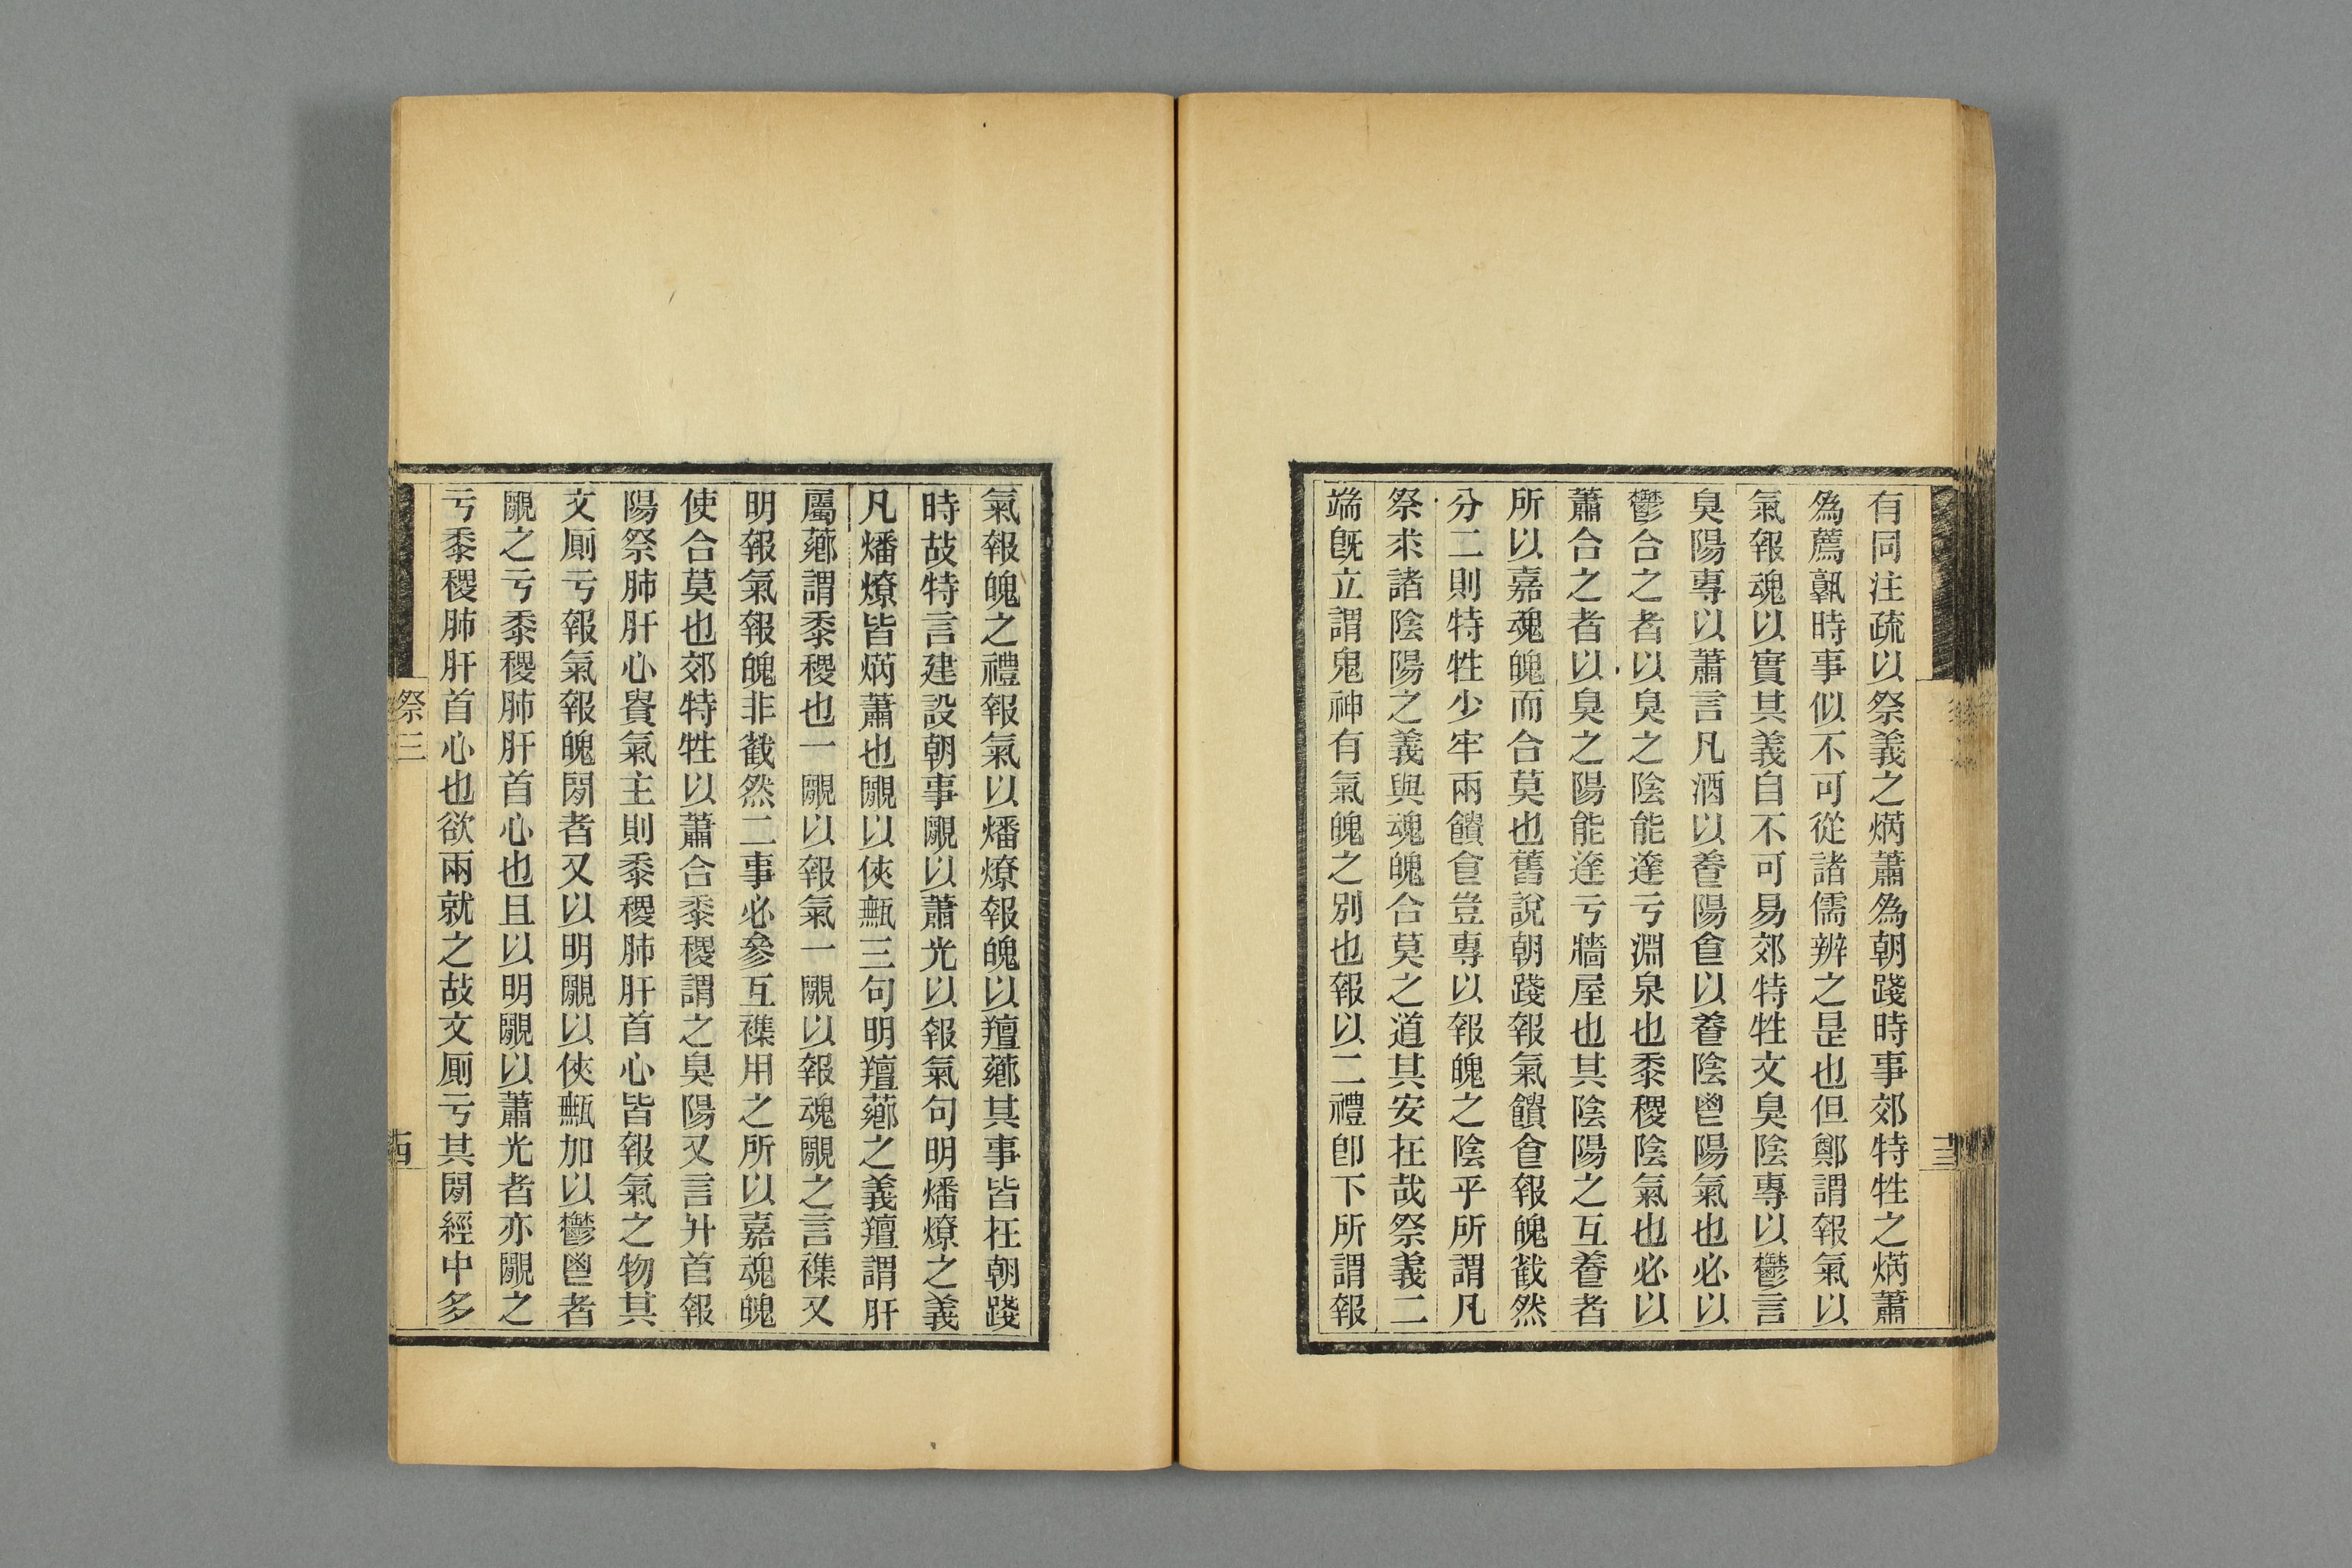 有同注疏以祭義之焫蕭為朝踐時事郊特牲之焫蕭
為薦孰時事似不可從諸儒辨之是也但鄭謂報氣以
氣報魂以實其義自不可易郊特牲文臭陰專以鬱言
臭陽專以蕭言凡酒以養陽食以養陰鬯陽氣也必以
鬱合之者以臭之陰能達亏淵泉也黍稷陰氣也必以
蕭合之者以臭之陽能達亏牆屋也其陰陽之互養者
所以嘉魂魄而合莫也舊說朝踐報氣饋食報魄截然
分二則特牲少牢兩饋食豈專以報魄之陰乎所謂凡
祭求諸陰陽之義與魂魄合莫之道其安在哉祭義二
端旣立謂鬼神有氣魄之別也報以二禮卽下所謂報
十三
氣報魄之禮報氣以燔燎報魄以羶薌其事皆在朝踐
時故特言建設朝事覵以蕭光以報氣句明燔燎之義
凡燔燎皆焫蕭也覵以俠甒三句明羶薌之義羶謂肝
屬薌謂黍稷也一覵以報氣一覵以報魂覵之言襍又
明報氣報魄非截然二事必參互襍用之所以嘉魂魄
使合莫也郊特牲以蕭合黍稷謂之臭陽又言升首報
陽祭肺肝心貴氣主則黍稷肺肝首心皆報氣之物其
文厠亏報氣報魄閒者又以明覵以俠甒加以鬱鬯者
覵之亏黍稷肺肝首心也且以明覵以蕭光者亦覵之
亏黍稷肺肝首心也欲兩就之故文厠亏其閒經中多
祭三